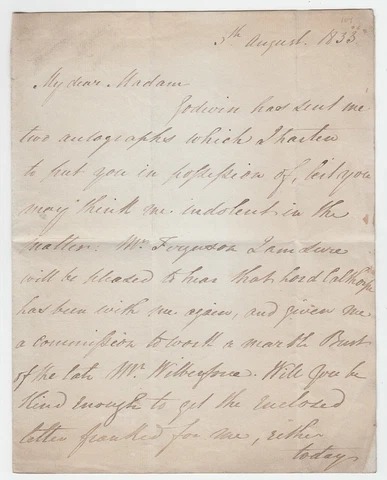 5th August. 1833
My dear Madam
Godwin has sent me
two autographs which I hasten
to put you in possession of, lest you
may think me indolent in the
matter: Mr. Ferguson I am sure
will be pleased to hear that Lord Calthorpe
has been with me again, and given me
a commission to work a marble Bust
of the late Mr. Wilberforce. Will you be
Kind enough to get the enclosed
letter franked for me, either
today